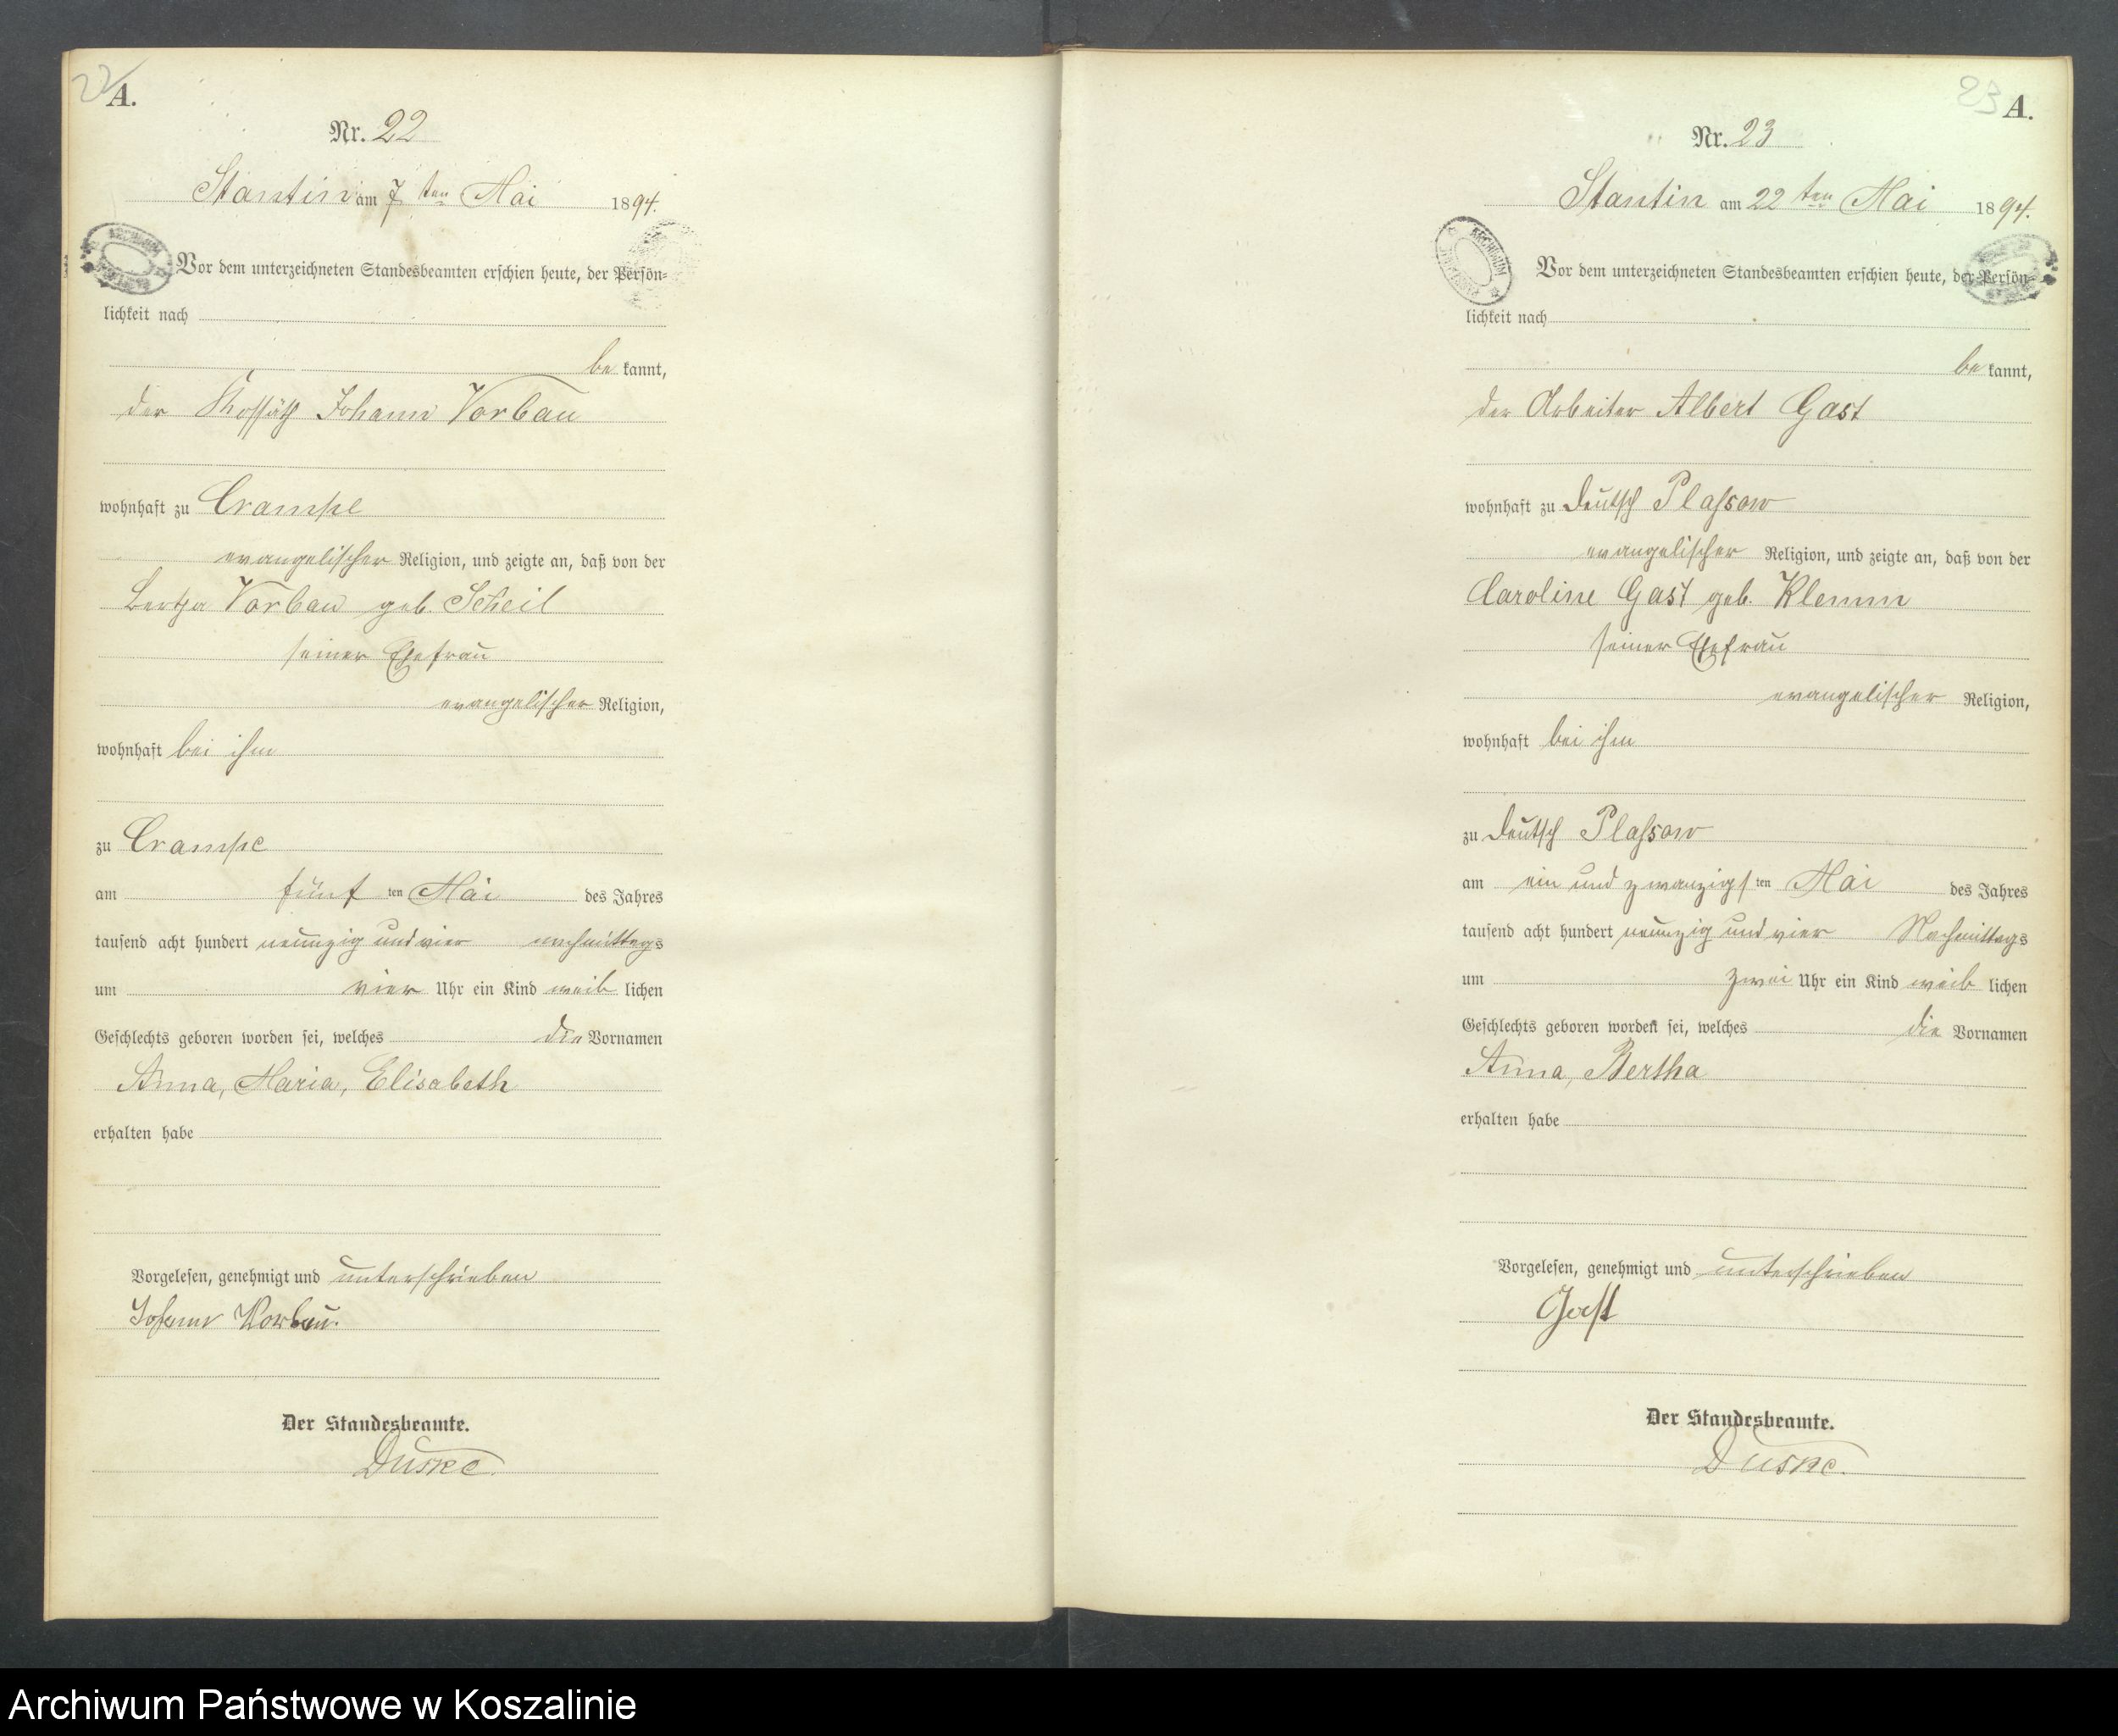 22
A.
Nr. 22
Stantin am 7 ten Mai 1894.
Vor dem unterzeichneten Standesbeamten erschien heute, der Persön=
lichkeit nach
be kannt,
der Kossäth Johann Vorbau
wohnhaft zu Crampe
evangelischer Religion, und zeigte an, daß von der
Bertha Vorbau geb. Scheil
seiner Ehefrau
evangelischer Religion,
wohnhaft bei ihm
zu Crampe
am fünf ten Mai des Jahres
tausend acht hundert neunzig und vier nachmittags
um vier Uhr ein Kind weib lichen
Geschlechts geboren worden sei, welches die Vornamen
Anna, Maria, Elisabeth
erhalten habe
Vorgelesen, genehmigt und unterschrieben
Johann Vorbau.
Der Standesbeamte.
Duske.
23
A.
Nr. 23
Stantin am 22 ten Mai 1894.
Vor dem unterzeichneten Standesbeamten erschien heute, der Persön=
lichkeit nach
be kannt,
der Arbeiter Albert Gast
wohnhaft zu Deutsch Plassow
evangelischer Religion, und zeigte an, daß von der
Caroline Gast geb. Klemm
seiner Ehefrau
evangelischer Religion,
wohnhaft bei ihm
zu Deutsch Plassow
am ein und zwanzigs ten Mai des Jahres
tausend acht hundert neunzig und vier Nachmittags
um zwei Uhr ein Kind weib lichen
Geschlechts geboren worden sei, welches die Vornamen
Anna, Bertha
erhalten habe
Vorgelesen, genehmigt und unterschrieben
Gast
Der Standesbeamte.
Duske.
Archiwum Państwowe w Koszalinie